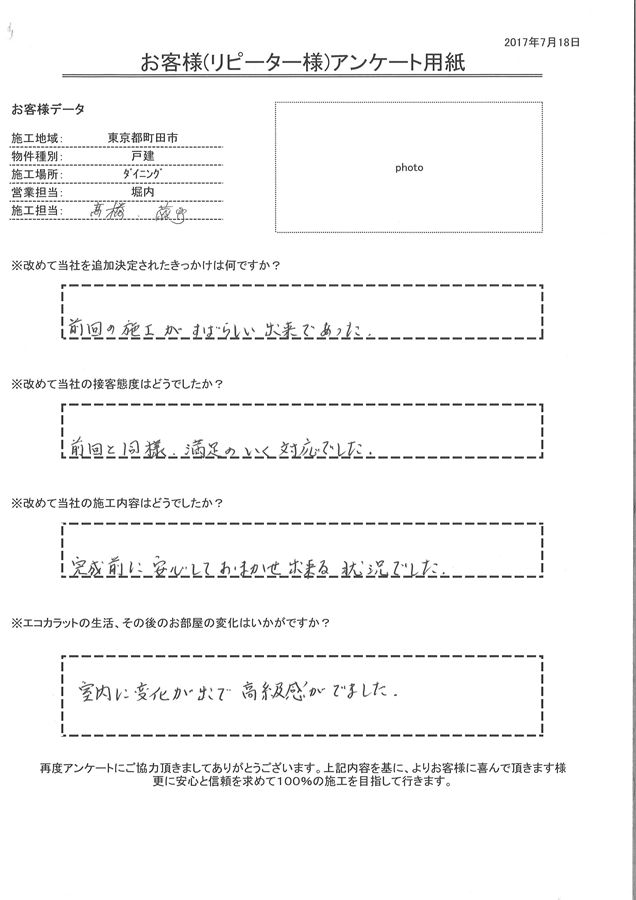 2017年7月18日
お客様(リピーター様)アンケート用紙
お客様データ
施工地域： 東京都町田市
物件種別： 戸建
施工場所： ﾀﾞｲﾆﾝｸﾞ
営業担当： 堀内
施工担当： 高橋、
photo
※改めて当社を追加決定されたきっかけは何ですか？
前回の施工がすばらしい出来であった.
※改めて当社の接客態度はどうでしたか？
前回と同様、満足のいく対応でした.
※改めて当社の施工内容はどうでしたか？
完成前に安心しておまかせ出来る状況でした.
※エコカラットの生活、その後のお部屋の変化はいかがですか？
室内に変化が出て高級感がでました.
再度アンケートにご協力頂きましてありがとうございます。上記内容を基に、よりお客様に喜んで頂きます様
更に安心と信頼を求めて100%の施工を目指して行きます。